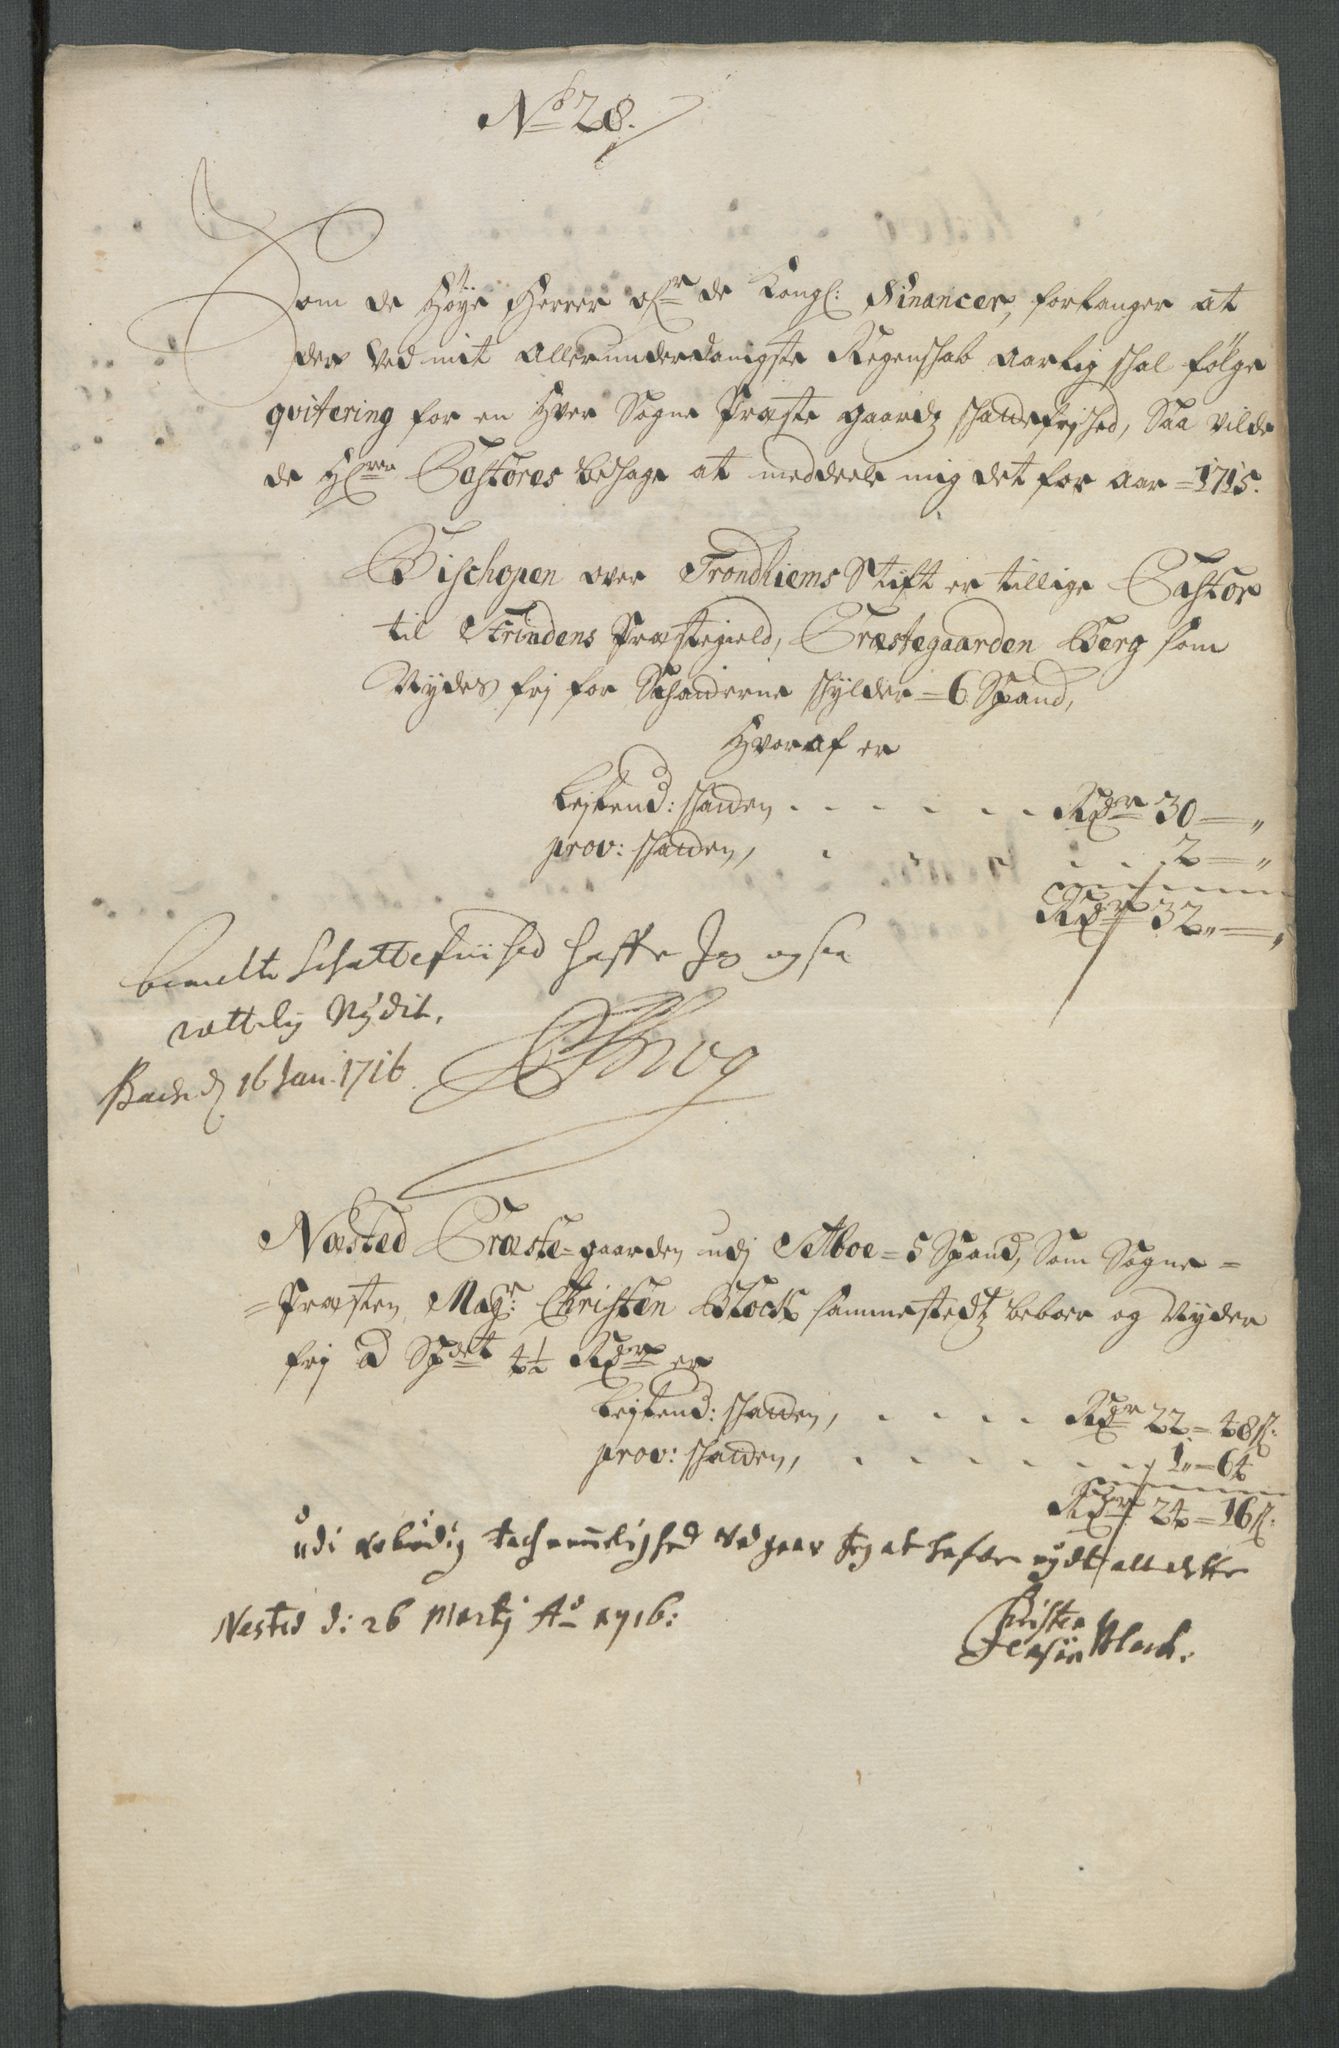 No 28.
Som de Høye Herrer ofr de Kongl: Financer, forlanger at
der ved mit Allerunderdanigste Regenskab aarlig skal følge
qvitering for en hver Sogne Præste gaardz skattefrjhed, Saa vilde
de Hrer Pastores behage at meddeele mig det for aar = 1715.
Bischopen over Trondhiems Stift er tillige Pastor
til Strindens Præstegield, Præstegaarden Berg som
Nydes frj for Schatterne skylder = 6 Spand,
Hvoraf er
Lejlend: skatten . . . . . . Rdr 30 — "
prov: skatten, . . . . . 2 — "
Rdr 32 " — "
bemelte Schattefriihed haffr Jeg ogsaa
rættelig Nÿdit.
d 16 Jan: 1716. Krog
Næsted Præste-gaarden udj Selboe = 5 Spand, Som Sogne =
= Præsten, Magr: Christen Block sammestedtz beboer og Nyder
frj a Spdet 4½ Rdr er
Lejlend: skatten, . . . . Rdr 22 = 48 s:
prov: skatten, . . . . . . 1 " = 64
Rdr 24 = 16 s:
udi ærbødig tachnemelighed ved gaar Jeg at hafve nydt alt dette
Nested d: 26 Martj Ao 1716:
Christen
Jensøn Block.